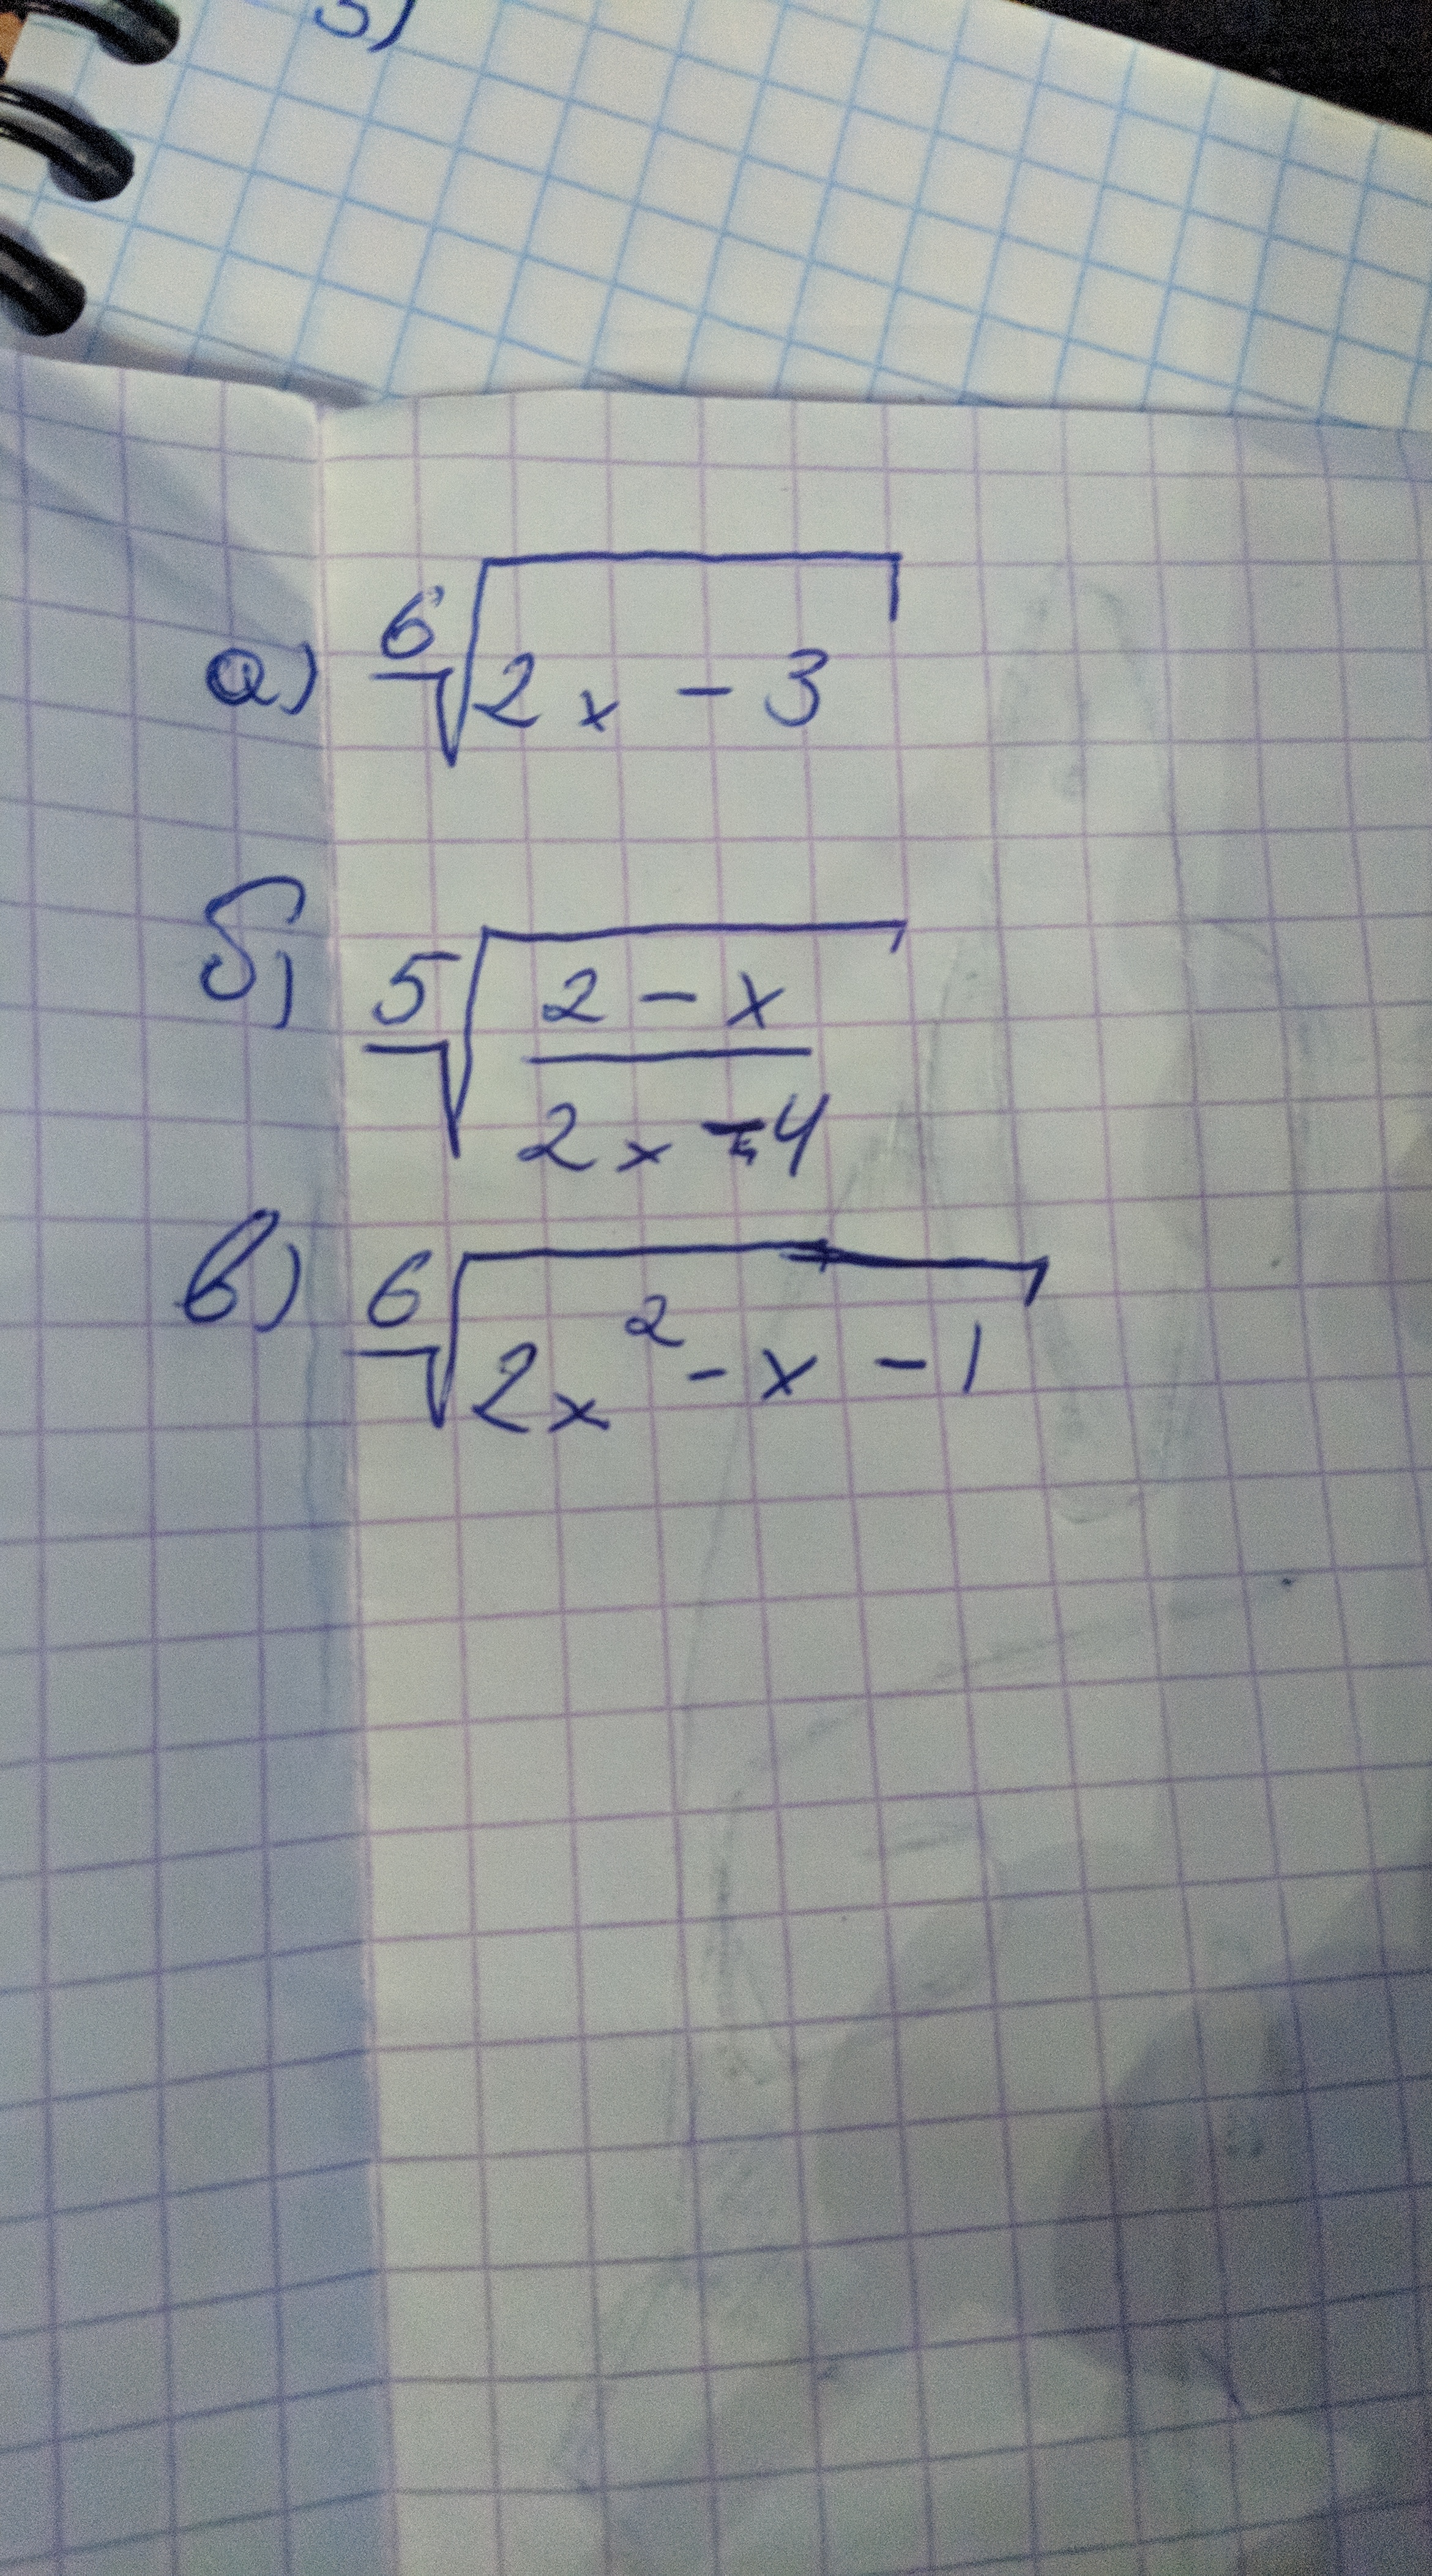 3)
а) ⁶√(2x - 3)
б) ⁵√((2 - x)/(2x - 4))
в) ⁶√(2x² - x - 1)